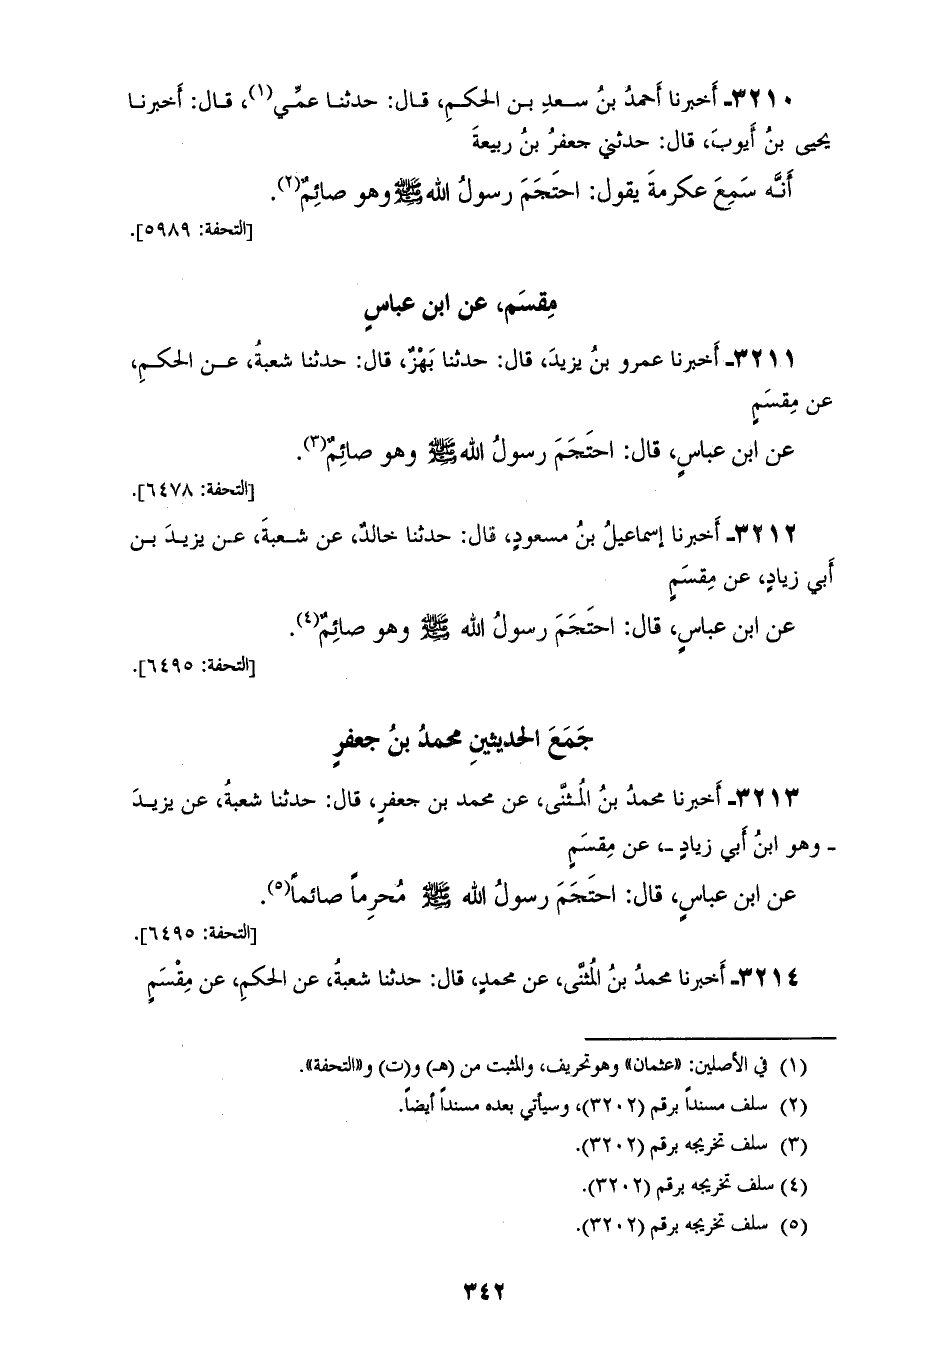 ٣٢١٠ـ أَخبرنا أَحمدُ بنُ سـعدِ بـن الحكـمِ، قـال: حدثنـا عمِّـي(١)، قـال: أَخبرنـا
يحيى بنُ أَيوبَ، قال: حدثني جعفرُ بنُ ربيعةَ
أَنَّه سَمِعَ عكرمةَ يقول: احتَجَمَ رسولُ الله ﷺ وهو صائِمٌ(٢).
[التحفة: ٥٩٨٩].
مِقسَم، عن ابن عباسٍ
٣٢١١ـ أَخبرنا عمرو بنُ يزيدَ، قال: حدثنا بَهْزٌ، قال: حدثنا شعبةُ، عـن الحكـمِ،
عن مِقسَمٍ
عن ابن عباسٍ، قال: احتَجَمَ رسولُ الله ﷺ وهو صائِمٌ(٣).
[التحفة: ٦٤٧٨].
٣٢١٢ـ أَخبرنا إسماعيلُ بنُ مسعودٍ، قال: حدثنا خالدٌ، عن شـعبةَ، عـن يزيـدَ بـن
أَبي زيادٍ، عن مِقسَمٍ
عن ابن عباسٍ، قال: احتَجَمَ رسولُ الله ﷺ وهو صائِمٌ(٤).
[التحفة: ٦٤٩٥].
جَمَعَ الحديثينِ محمدُ بنُ جعفرٍ
٣٢١٣ـ أَخبرنا محمدُ بنُ المُـثنَّى، عن محمد بن جعفرٍ، قال: حدثنا شعبةُ، عن يزيـدَ
ـ وهو ابنُ أَبي زيادٍ ـ، عن مِقسَمٍ
عن ابن عباسٍ، قال: احتَجَمَ رسولُ الله ﷺ مُحرِماً صائماً(٥).
[التحفة: ٦٤٩٥].
٣٢١٤ـ أَخبرنا محمدُ بنُ المُثنَّى، عن محمدٍ، قال: حدثنا شعبةُ، عن الحكمِ، عن مِقْسَمٍ
(١) في الأصلين: «عثمان» وهو تحريف، والمثبت من (هـ) و(ت) و«التحفة».
(٢) سلف مسنداً برقم (٣٢٠٢)، وسيأتي بعده مسنداً أيضاً.
(٣) سلف تخريجه برقم (٣٢٠٢).
(٤) سلف تخريجه برقم (٣٢٠٢).
(٥) سلف تخريجه برقم (٣٢٠٢).
٣٤٢